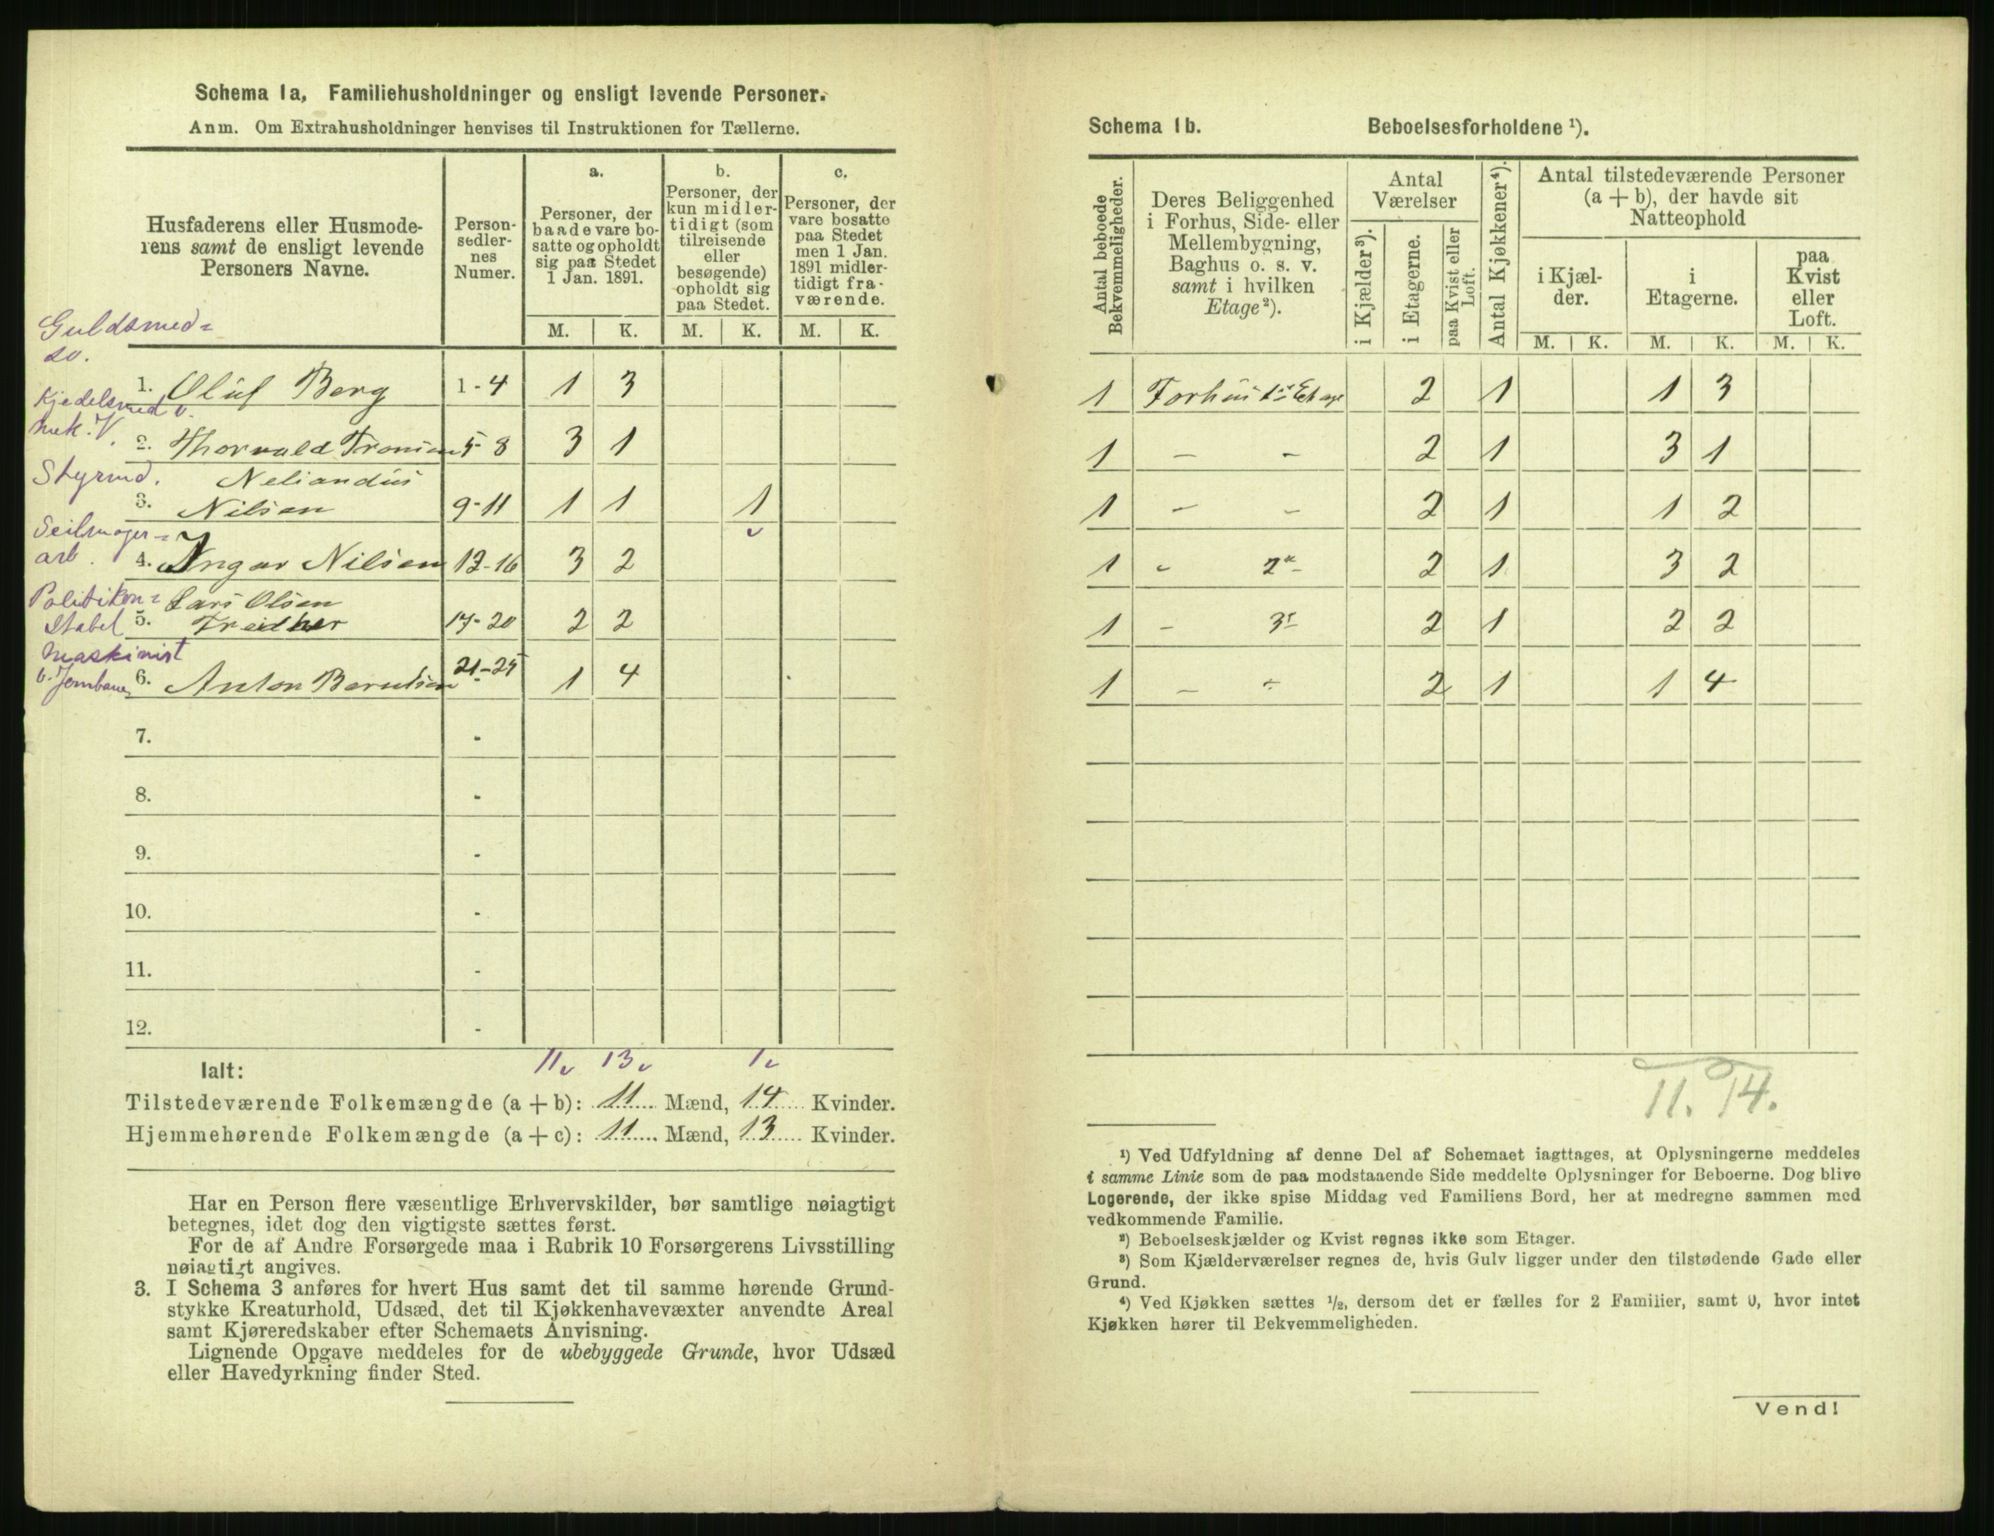 Schema 1a, Familiehusholdninger og ensligt levende Personer.
Anm. Om Extrahusholdninger henvises til Instruktionen for Tællerne.
Husfaderens eller Husmode-
rens samt de ensligt levende
Personers Navne.
Person-
sedler-
nes
Numer.
a.
Personer, der
baade vare bo-
satte og opholdt
sig paa Stedet
1 Jan. 1891.
b.
Personer, der
kun midler-
tidigt (som
tilreisende
eller
besøgende)
opholdt sig
paa Stedet.
c.
Personer, der
vare bosatte
paa Stedet
men 1 Jan.
1891 midler-
tidigt fra-
værende.
M. K. M. K. M. K.
Guldsmed=
sv.
1. Oluf Berg 1-4 1 3
Kjedelsmed v.
mek. V.
2. Thorvald Tronsen 5-8 3 1
Styrmd. Neliandus
3. Nilsen 9-11 1 1 1
Seilmager=
arb. 4. Ingar Nilsen 12-16 3 2
Politikon= Lars Olsen
stabel 5. 17-20 2 2
Maskinist
v. Jernbanen 6. Anton Berntsen 21-25 1 4
7. -
8. -
9. -
10. -
11. -
12. -
11 13 1
Ialt:
Tilstedeværende Folkemængde (a + b): 11 Mænd, 14 Kvinder.
Hjemmehørende Folkemængde (a + c): 11 Mænd, 13 Kvinder.
Har en Person flere væsentlige Erhvervskilder, bør samtlige nøiagtigt
betegnes, idet dog den vigtigste sættes først.
For de af Andre Forsørgede maa i Rubrik 10 Forsørgerens Livsstilling
nøiagtigt angives.
3. I Schema 3 anføres for hvert Hus samt det til samme hørende Grund-
stykke Kreaturhold, Udsæd, det til Kjøkkenhavevæxter anvendte Areal
samt Kjøreredskaber efter Schemaets Anvisning.
Lignende Opgave meddeles for de ubebyggede Grunde, hvor Udsæd
eller Havedyrkning finder Sted.
Schema 1b. Beboelsesforholdene ¹).
Antal beboede
Bekvemmeligheder.
Deres Beliggenhed
i Forhus, Side- eller
Mellembygning,
Baghus o. s. v.
samt i hvilken
Etage²).
Antal
Værelser
i Kjælder³).
i Etagerne.
paa Kvist eller
Loft.
Antal Kjøkkener⁴).
Antal tilstedeværende Personer
(a + b), der havde sit
Natteophold
i Kjæl-
der.
i
Etagerne.
paa
Kvist
eller
Loft.
M. K. M. K. M. K.
1 Forhus 1ste Etage 2 1 1 3
1 - - 2 1 3 1
1 - - 2 1 1 2
1 - 2 - 2 1 3 2
1 - 3 2 1 2 2
1 - - 2 1 1 4
11. 14.
¹) Ved Udfyldning af denne Del af Schemaet iagttages, at Oplysningerne meddeles
i samme Linie som de paa modstaaende Side meddelte Oplysninger for Beboerne. Dog blive
Logerende, der ikke spise Middag ved Familiens Bord, her at medregne sammen med
vedkommende Familie.
²) Beboelseskjælder og Kvist regnes ikke som Etager.
³) Som Kjælderværelser regnes de, hvis Gulv ligger under den tilstødende Gade eller
Grund.
⁴) Ved Kjøkken sættes 1/2, dersom det er fælles for 2 Familier, samt 0, hvor intet
Kjøkken hører til Bekvemmeligheden.
Vend!